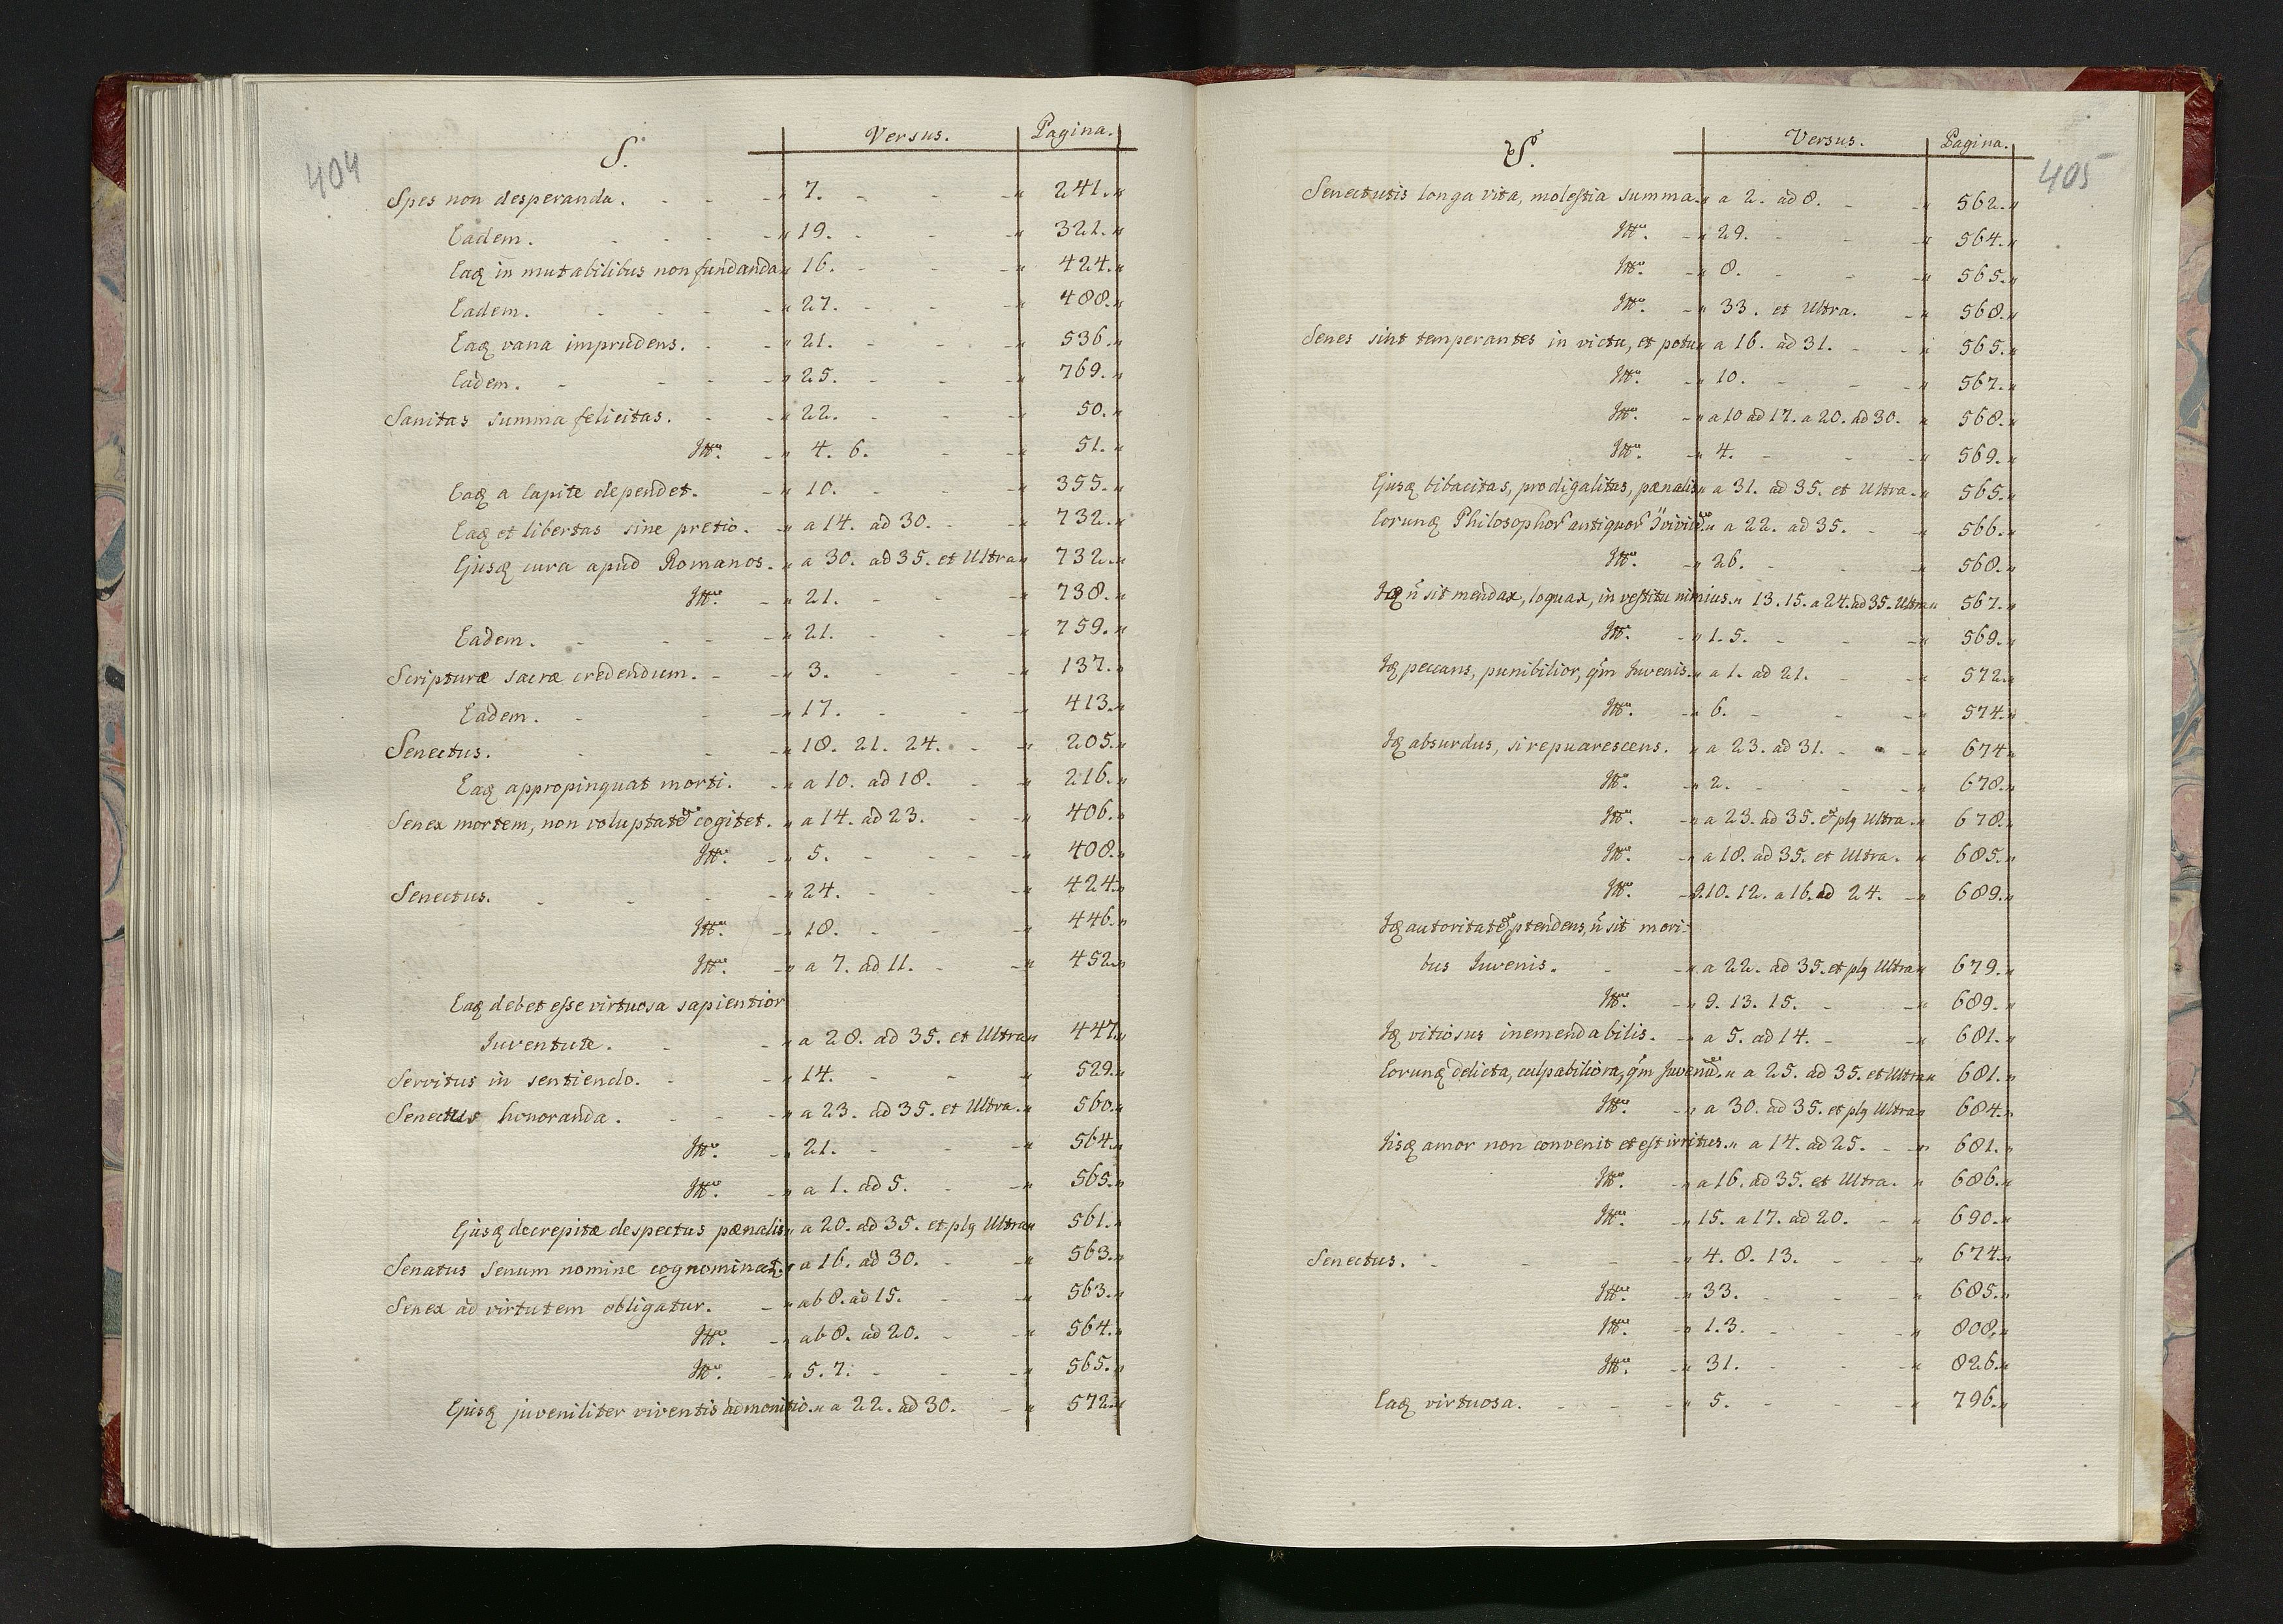 404
S. Versus. Pagina.
Spes non desperanda. 7. 241.
Eadem. 19. 321.
Eaq in mutabilibus non fundanda 16. 424.
Eadem. 27. 488.
Eaq vana imprudens. 21. 536.
Eadem. 25. 769.
Sanitas summa felicitas. 22. 50.
Itt. 4. 6. 51.
Eaq a capite dependet. 10. 355.
Eaq et libertas sine pretio. a 14. ad 30. 732.
Ejusq cura apud Romanos. a 30. ad 35. et Ultra 732.
Itt. 21. 738.
Eadem. 21. 759.
Scripturæ sacræ credendum. 3. 137.
Eadem. 17. 413.
Senectus. 18. 21. 24. 205.
Eaq appropinquat morti. a 10. ad 18. 216.
Senex mortem, non voluptatē cogitet. a 14. ad 23. 406.
Itt. 5. 408.
Senectus. 24. 424.
Itt. 18. 446.
Itt. a 7. ad 11. 452.
Eaq debet esse virtuosa sapientior
Iuventute. a 28. ad 35. et Ultra 447.
Servitus in sentiendo. 14. 529.
Senectus honoranda. a 23. ad 35. et Ultra. 560.
Itt. 21. 564.
Itt. a 1. ad 5. 565.
Ejusq decrepitæ despectus pænalis a 20. ad 35. et plq Ultra 561.
Senatus Senum nomine cognominat. a 16. ad 30. 563.
Senex ad virtutem obligatur. ab 8. ad 15. 563.
Itt. ab 8. ad 20. 564.
Itt. 5. 7. 565.
Ejusq juveniliter viventis admonitio. a 22. ad 30. 572.
S. Versus. Pagina.
405
Senectutis longa vita, molestia summa. a 2. ad 8. 562.
Itt. 29. 564.
Itt. 8. 565.
Itt. 33. et Ultra. 568.
Senes sint temperantes in victu, et potu a 16. ad 31. 565.
Itt. 10. 567.
Itt. a 10 ad 17. a 20. ad 30. 568.
Itt. 4. 569.
Ejusq bibacitas, prodigalitas, pænalis a 31. ad 35. et Ultra. 565.
Eorunq Philosophor antiquor a 22. ad 35. 566.
Itt. 26. 568.
Iq ñ sit mendax, loquax, in vestitu nimius. 13. 15. a 24. ad 35. Ultra 567.
Itt. 1. 5. 569.
Iq peccans, punibilior, qm Iuvenis. a 1. ad 21. 572.
Itt. 6. 574.
Iq absurdus, si repuarescens. a 23. ad 31. 674
Itt. 2. 678.
Itt. a 23. ad 35. et plq Ultra. 678.
Itt. a 18. ad 35. et Ultra. 685.
Itt. 9. 10. 12. a 16. ad 24. 689.
Iq autoritatē ptendens, ñ sit mori-
bus Iuvenis. a 22. ad 35. et plq Ultra 679.
Itt. 9. 13. 15. 689.
Iq vitiosus inemendabilis. a 5. ad 14. 681.
Eorunq delicta, culpabiliora, qm Iuvenū. a 25. ad 35. et Ultra 681.
Itt. a 30. ad 35. et plq Ultra 684.
Iisq amor non convenit et est irritus. a 14. ad 25. 681.
Itt. a 16. ad 35. et Ultra. 686.
Itt. 15. a 17. ad 20. 690.
Senectus. 4. 8. 13. 674.
Itt. 33. 685.
Itt. 1. 3. 808.
Itt. 31. 826.
Eaq virtuosa. 5. 796.